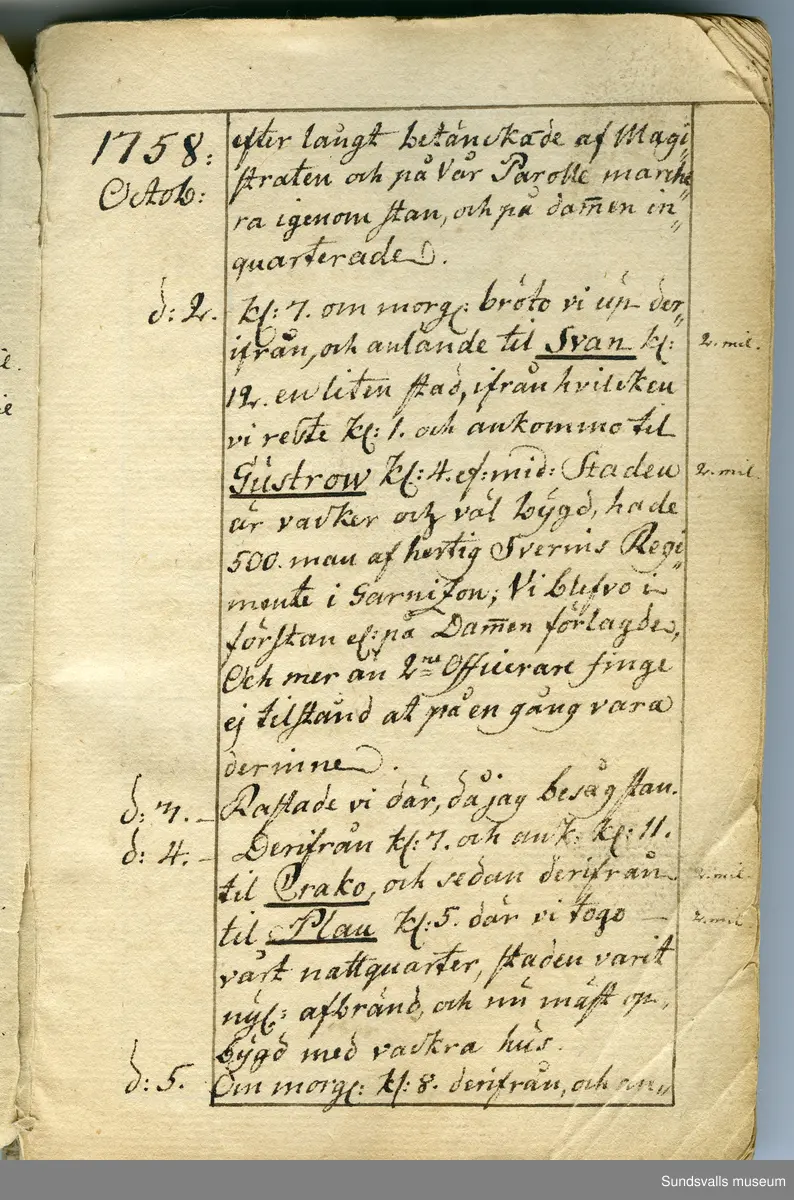 1758: efter langt betänckade af Magi„
Octob: straten och på Vår Parolle marche„
ra igenom stan, och på dam̄en in„
quarterade.
d: 2. kl: 7. om morg: bröto vi up der„
ifrån, och anlände til Svan kl: 2. mil.
12. en liten stad, ifrån hvilcken
vi reste kl: 1. och ankommo til
Güstrow kl: 4. ef: mid: Staden 2. mil.
är vacker och väl bygd, hade
500. man af hertig Sverins Regi„
mente i Garnizon; Vi blefvo i
förstan ej: på Dam̄en förlagde,
Och mer än 2ne Officerare finge
ej tilstånd at på en gång vara
derinne.
d: 3. – Rastade vi där, då jag besåg stan.
d: 4. – Derifrån kl: 7. och ank: kl: 11.
til Crako, och sedan derifrån 2. mil.
til Plau kl: 5. där vi togo – 2. mil.
vårt nattquarter, staden varit
nyl: afbränd, och nu mäst op„
bygd med vackra hus.
d: 5. Om morg: kl: 8. derifrån, och an„
Sundsvalls museum